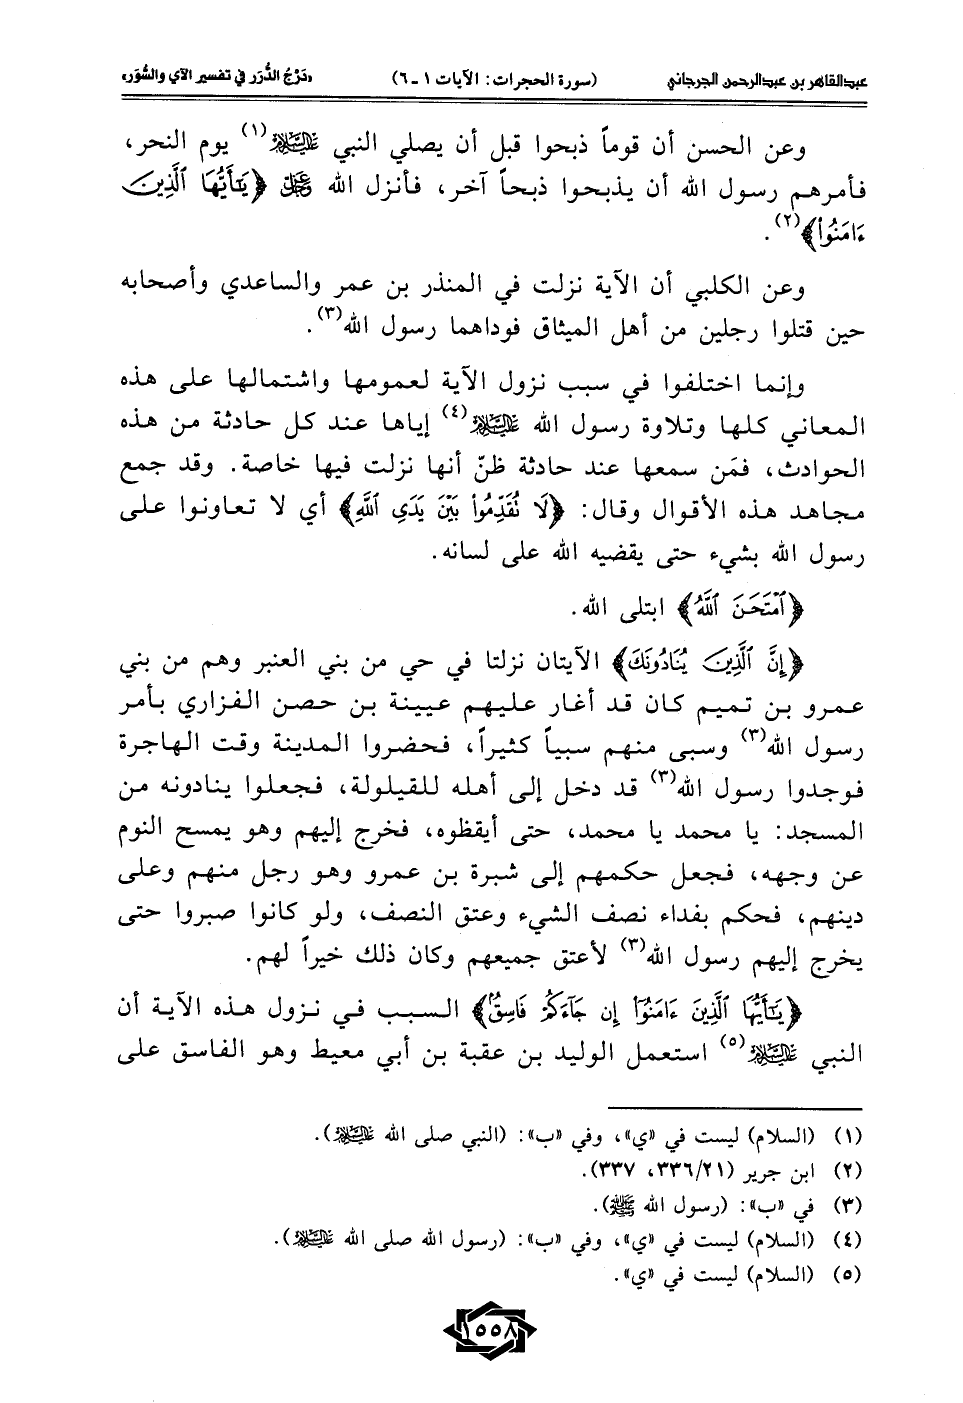 عبدالقاهر بن عبدالرحمن الجرجاني (سورة الحجرات: الآيات ١ ـ ٦) «دَرْجُ الدُّرَر في تفسير الآي والسُّوَر»
وعن الحسن أن قوماً ذبحوا قبل أن يصلي النبي عليه السلام(١) يوم النحر،
فأمرهم رسول الله أن يذبحوا ذبحاً آخر، فأنزل الله عز وجل ﴿يَـٰٓأَيُّهَا ٱلَّذِينَ
ءَامَنُواْ﴾(٢).
وعن الكلبي أن الآية نزلت في المنذر بن عمر والساعدي وأصحابه
حين قتلوا رجلين من أهل الميثاق فوداهما رسول الله(٣).
وإنما اختلفوا في سبب نزول الآية لعمومها واشتمالها على هذه
المعاني كلها وتلاوة رسول الله عليه السلام(٤) إياها عند كل حادثة من هذه
الحوادث، فمَن سمعها عند حادثة ظنّ أنها نزلت فيها خاصة. وقد جمع
مجاهد هذه الأقوال وقال: ﴿لَا تُقَدِّمُواْ بَيْنَ يَدَىِ ٱللَّهِ﴾ أي لا تعاونوا على
رسول الله بشيء حتى يقضيه الله على لسانه.
﴿ٱمْتَحَنَ ٱللَّهُ﴾ ابتلى الله.
﴿إِنَّ ٱلَّذِينَ يُنَادُونَكَ﴾ الآيتان نزلتا في حي من بني العنبر وهم من بني
عمرو بن تميم كان قد أغار عليهم عيينة بن حصن الفزاري بأمر
رسول الله(٣) وسبى منهم سبياً كثيراً، فحضروا المدينة وقت الهاجرة
فوجدوا رسول الله(٣) قد دخل إلى أهله للقيلولة، فجعلوا ينادونه من
المسجد: يا محمد يا محمد، حتى أيقظوه، فخرج إليهم وهو يمسح النوم
عن وجهه، فجعل حكمهم إلى شبرة بن عمرو وهو رجل منهم وعلى
دينهم، فحكم بفداء نصف الشيء وعتق النصف، ولو كانوا صبروا حتى
يخرج إليهم رسول الله(٣) لأعتق جميعهم وكان ذلك خيراً لهم.
﴿يَـٰٓأَيُّهَا ٱلَّذِينَ ءَامَنُوٓاْ إِن جَآءَكُمْ فَاسِقٌۢ﴾ السبب في نزول هذه الآية أن
النبي عليه السلام(٥) استعمل الوليد بن عقبة بن أبي معيط وهو الفاسق على
(١) (السلام) ليست في «ي»، وفي «ب»: (النبي صلى الله عليه السلام).
(٢) ابن جرير (٣٣٦/٢١، ٣٣٧).
(٣) في «ب»: (رسول الله ﷺ).
(٤) (السلام) ليست في «ي»، وفي «ب»: (رسول الله صلى الله عليه السلام).
(٥) (السلام) ليست في «ي».
١٥٥٨